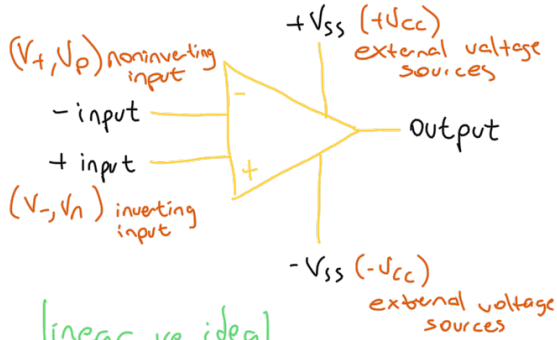 +Vss (+Vcc)
external valtage
sources
(V+, Vp) noninverting
input
-
- input
output
+ input
+
(V-, Vn) inverting
input
-Vss (-Vcc)
external voltage
sources
linear vs ideal